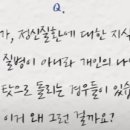 Q.
가, 정신질환에 대한 지식
질병이 아니라 개인의 나
탓으로 돌리는 경우들이 있습
이거 왜 그런 걸까요?